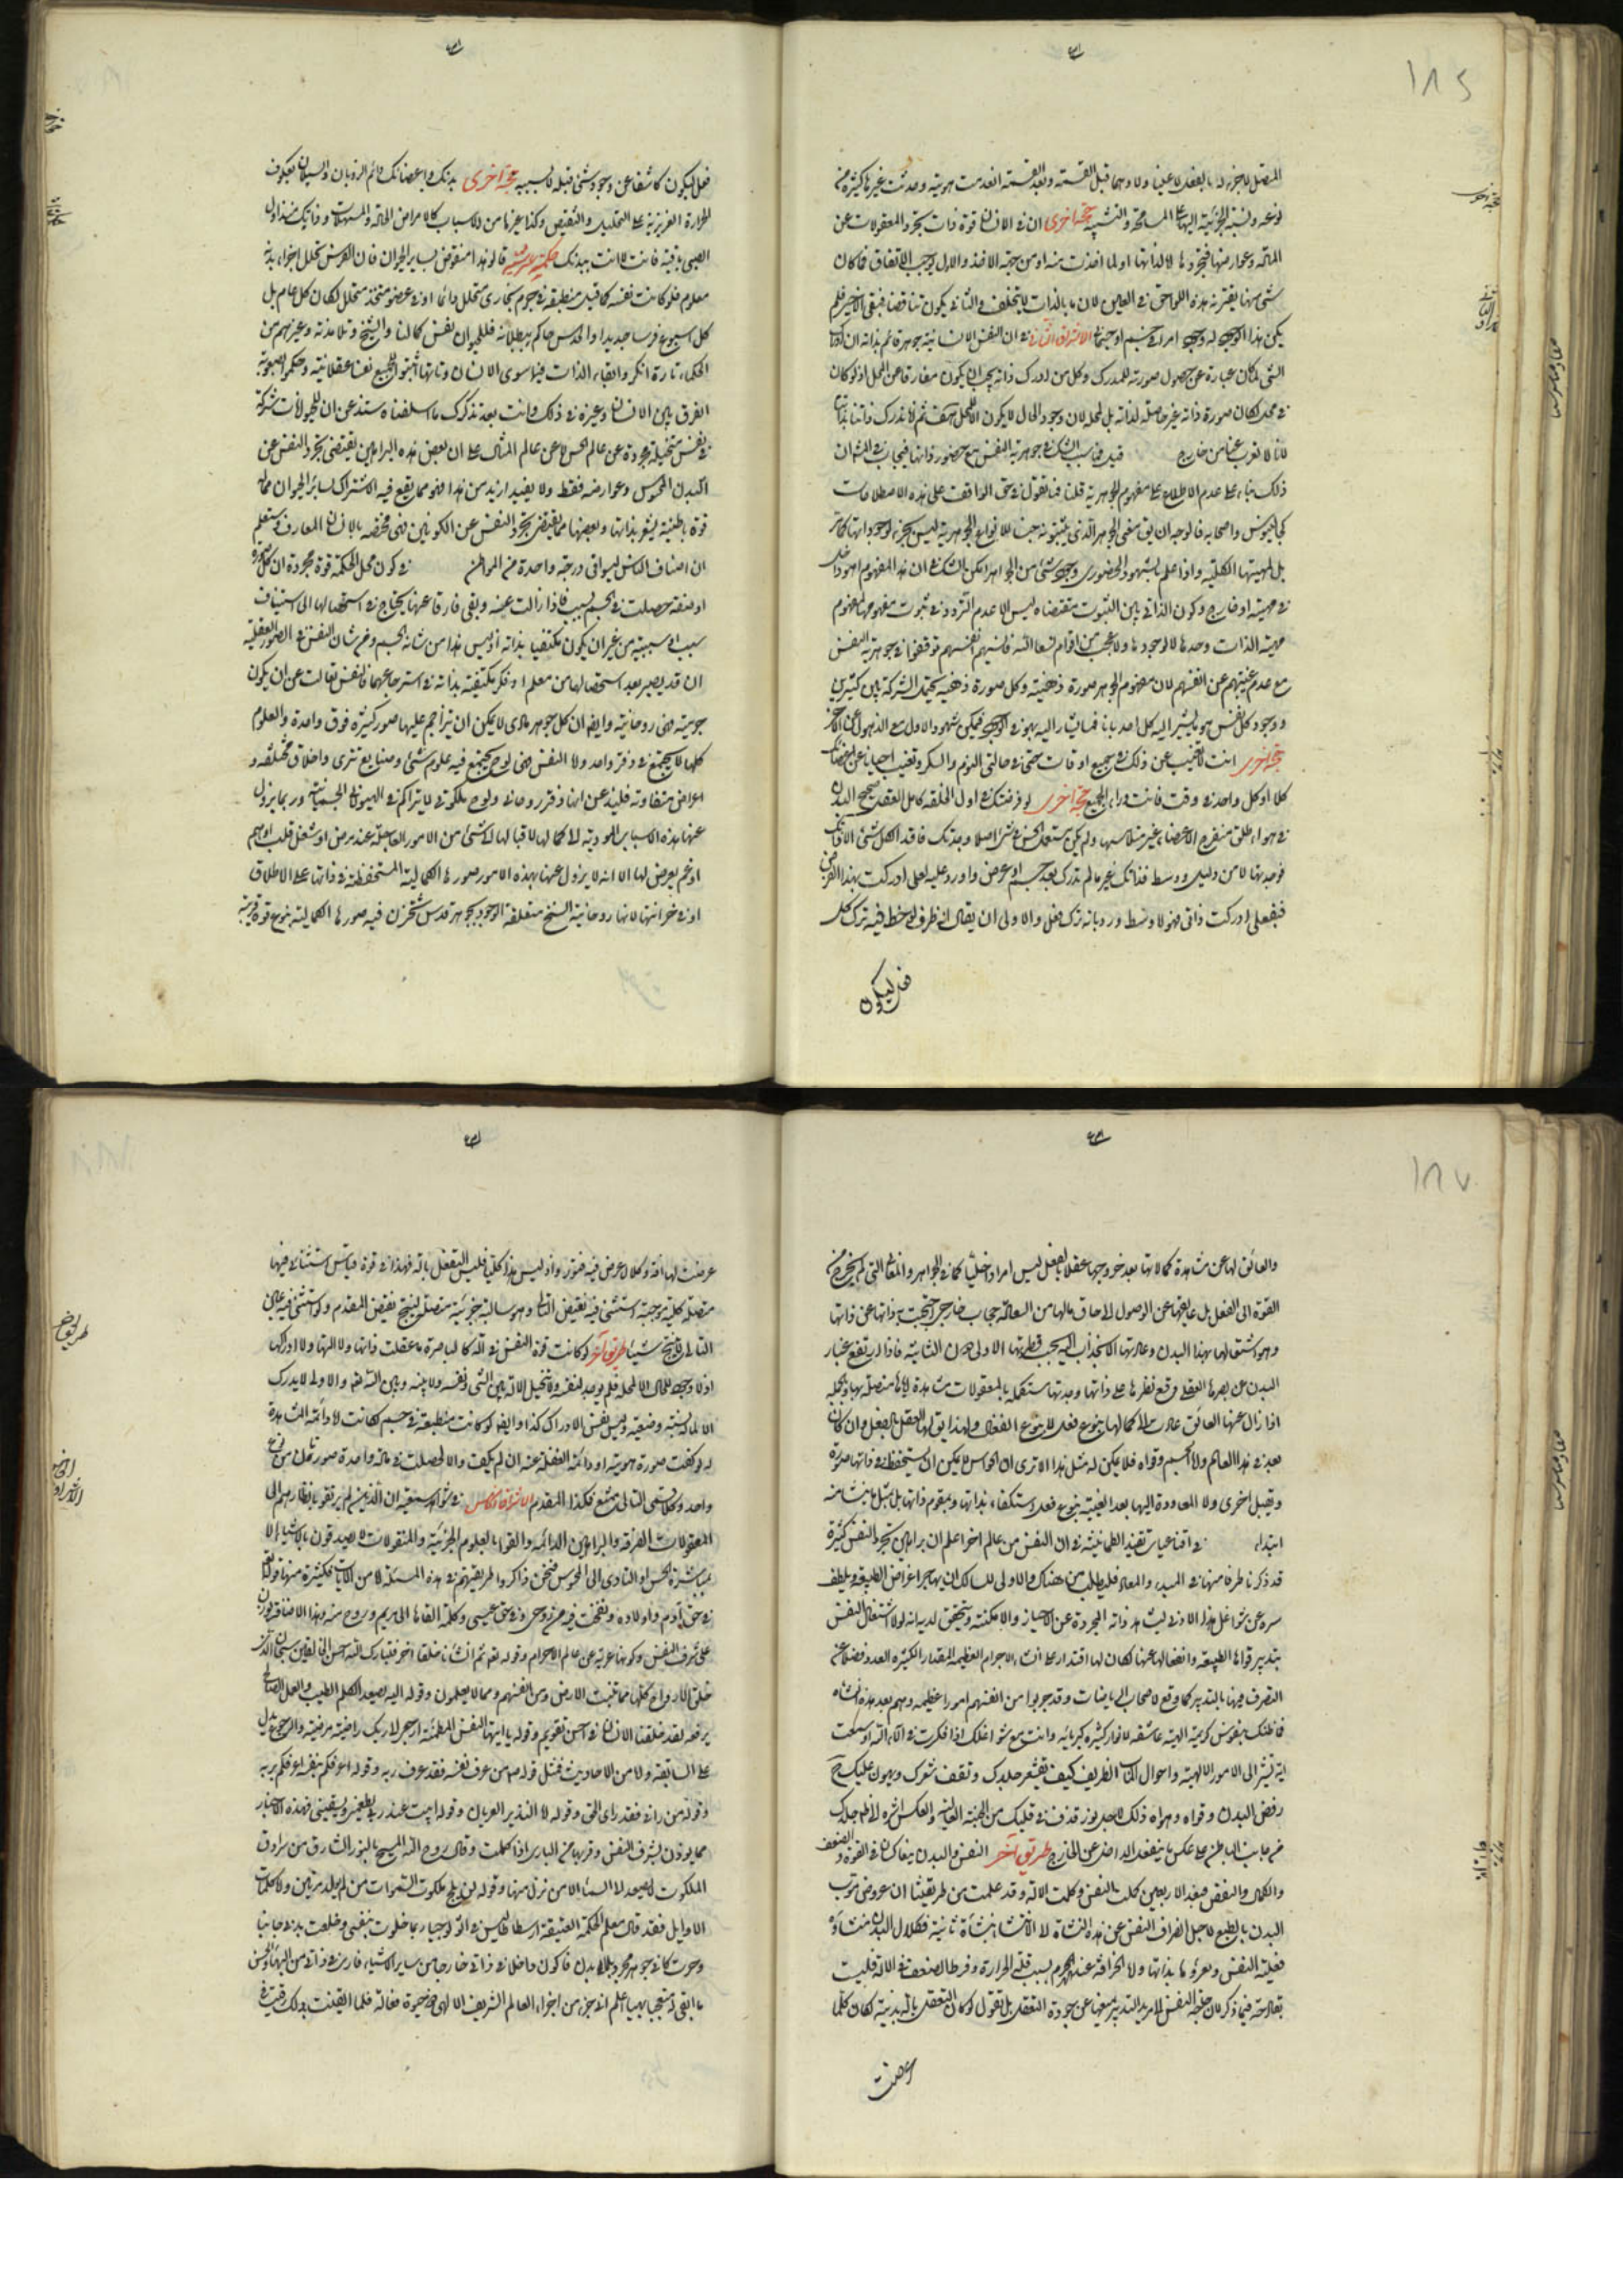 ١٨٤
المتصل لا جزء له بالفعل لا عينا ولا وهما قبل القسمة وبعد القسمة انعدمت هويته وحدثت غيرها كثيرة من
نوعه ونسبة الجزئية اليها على المسامحة والتشبيه حجة اخرى ان في الانسان قوة ذات تجرد المعقولات عن
المادة وعوارضها فتجردها لا لذاتها او لما اخذت منه او من جهة الاخذ والاول يوجب الاتفاق فما كان
شئ منها يقترنه هذه اللواحق في العين لان ما بالذات لا يتخلف والثاني يكون تناقضا فبقى الاخير فلم
يكن هذا الوجود له وجود امر في جسم او جسماني الاشراق الثاني في ان النفس الانسانية جوهر قائم بذاته ان ادراك
الشئ لما كان عبارة عن حصول صورته للمدرك وكل من ادرك ذاته يجب ان يكون مفارقا عن المحل اذ لو كان
في محل لكان صورة ذاته غير حاصلة لذاته بل لمحله لان وجود الحال لا يكون الا للمحل ثم لا ندرك ذاتنا بذاتنا
لانا لا نعزب عنا من خارج قيل فما سبب الشك في جوهرية النفس مع حضور ذاتها فيجاب في المشهور ان
ذلك بناء على عدم الاطلاع على مفهوم الجوهرية قلنا فما تقول في حق الواقف على هذه الاصطلاحات
كجالينوس واصحابه فالوجه ان يق معنى الجوهر الذي يثبتونه جنسا للانواع الجوهرية ليس بجزء لوجوداتها
بل لمهيتها الكلية واذا علم بالشهود الحضوري وجود شئ من الجواهر امكن الشك في ان هذا المفهوم اهو داخل
في مهيته او خارج وكون الذاتي بين الثبوت مقتضاه ليس الا عدم التردد في ثبوت مفهومها لمفهوم
مهية الذات وحدها لا لوجودها ولا عجب من اقوام نسوا الله فانسيهم انفسهم توقفوا في جوهرية النفس
مع عدم غيبتهم عن انفسهم لان مفهوم الجوهر صورة ذهنية وكل صورة ذهنية يحتمل الشركة بين كثيرين
ووجود كل نفس هو ما يشير اليه كل احد بانا فما يشار اليه بهو في الوجود فيمكن شهود الاول مع الذهول عن الاخر
حجة اخرى انت لا تغيب عن ذلك في جميع اوقات حتى في حالتي النوم والسكر وتغيب احيانا عن اعضائك
كلا او كل واحد في وقت فانت وراء الجميع حجة اخرى لو فرضتك في اول الخلقة كامل العقل صحيح البدن
في هواء طلق منفرج الاعضاء غير متلامسها ولم يكن مستعمل الحس في شئ اصلا وجدتك فاقد الكل شئ الا ذاتك
فوجدتها لا من دليل ووسط فذاتك غير ما لم تدرك بعد جسم او عرض واورد عليه لعلى ادركت بهذا الفرض
فبفعلى ادركت ذاتي فهو لا وسط وردبانه ترك فعل والاولى ان يقال
فعل ليكون
فعل ليكون كاشفا عن وجود شئ قبله لا بسببه حجة اخرى بدنك واعضائك دائم الذوبان والسيلان بعكوف
الحرارة الغريزية على التحليل والتنقيص وكذا غيرها من الاسباب كالامراض الحارة والمسهلات وذاتك منذ اول
الصبى باقية فانت لا انت ببدنك حكمة عرشية قالوا هذا منقوض بسائر الحيوان فان الفرس تخلل اجزاء بدنه
معلوم فلو كانت نفسه كما قيل منطبعة في جرم بخاري متحلل دائما او في عضو متغذ متحلل لكان كل عام بل
كل اسبوع فرسا جديدا والحدس حاكم ببطلانه فللحيوان نفس كما لنا والشيخ وتلامذته وغيرهم من
الحكماء تارة انكروا بقاء الذات فيما سوى الانسان وتارة اثبتوا للجميع نفسا عقلانية وحكموا بصعوبة
الفرق بين الانسان وغيره في ذلك وانت بعد تذكرك ما سلفناه ستذعن ان للحيوانات شركة
في نفس متخيلة مجردة عن عالم الحس لا عن عالم المثال على ان بعض هذه البراهين يقتضى تجرد النفس عن
البدن المحسوس وعوارضه فقط ولا يفيد ازيد من هذا فهو مما يقع فيه الاشتراك لسائر الحيوان مما له
قوة باطنية يشعر بذاتها وبعضها مما يقتضى تجرد النفس عن الكونين فهى مختصة بالانسان العارف وستعلم
ان اصناف الناس ليسوا في درجة واحدة من المواطن في كون محل الحكمة قوة مجردة ان كل صورة
او صفة حصلت في الجسم بسبب فاذا زالت عنه وبقى فارقا عنها يحتاج في استحصالها الى استيناف
سبب او سببية من غير ان يكون مكتفيا بذاته اذ ليس هذا من شان الجسم ومن شان النفس في الصور العقلية
ان قد يصير بعد استحصالها من معلم او فكر مكتفية بذاته في استرجاعها فالنفس تعالت عن ان يكون
جرمية فهى روحانية وايضا ان كل جوهر مادى لا يمكن ان يتزاحم عليها صور كثيرة فوق واحدة والعلوم
كلها لا يجتمع في دفتر واحد ولا النفس فهى لوح يجتمع فيه علوم شتى وصنايع تترى واخلاق مختلفة و
اعراض متفاوتة فليذعن انها دفتر روحاني ولوح ملكوتي لا يتراكم في الهيولى الجسمانية وربما يزول
عنها هذه الاسباب المؤدية الى كمالها لاقبالها الى شئ من الامور العاجلة عند مرض او شغل قلب او هم
او غم يعرض لها الا انه لا يزول عنها بهذه الامور صورها الكمالية المستحفظة في ذاتها على الاطلاق
او في خزانتها لانها روحانية السنخ متعلقة الوجود بجوهر قدسى تختزن فيه صورها الكمالية بنوع قوة قريبة
١٨٧
والعائق لها عن مشاهدة كمالاتها بعد خروجها عقلا بالفعل ليس امرا داخليا كما في الجواهر والمعاني التي لم يخرج من
القوة الى الفعل بل عايقها عن الوصول الى حاق مالها من السعادة حجاب خارجي احتجبت بذاتها عن ذاتها
وهو اشتغالها بهذا البدن
البدن عن بصرها العقلي وقع نظرها على ذاتها وجدتها مستكملة بالمعقولات مشاهدة اياها متصلة بها
اذا زال عنها العائق عادت الى كمالها بنوع فعل لا بنوع انفعال ولهذا يق لها العقل بالفعل وان كان
بعد في هذا العالم ولا الجسم وقواه فلا يمكن له مثل هذا الا ترى ان الحواس لا يمكن ان يستحفظ في ذاتها صورة
وتقبل اخرى ولا المعاودة اليها بعد الغيبة بنوع فعل واستكفاء بذاتها وبمقوم ذاتها بل بمثل ما نشأ منه
ابتداء في اقناعيات تفيد الطمانينة في ان النفس من عالم اخر اعلم ان براهين تجرد النفس كثيرة
قد ذكرنا طرفا منها في المبدء والمعاد فليطلب من هناك والاولى للسالك ان يهاجر اغراض الطبيعة ويلطف
سره عن شواغل هذا الادنى ليشاهد ذاته المجردة عن الاحياز والامكنة ويتحقق لديه انه لولا اشتغال النفس
بتدبير قواها الطبيعة وانفعالها عنها لكان لها اقتدار على انشاء الاجرام العظيمة المقدار الكثيرة العدد فضلا عن
التصرف فيها بالتدبير كما وقع لاصحاب الرياضات وقد جربوا من انفسهم امورا عظيمة وهم بعد في هذه النشاة
فما ظنك بنفوس كريمة الهية عاشقة لانوار كثيرة كبريائه وانت مع شواغلك اذا فكرت في الاء الله او سمعت
اية تشير الى الامور الالهية واحوال المآب الشريف كيف يقشعر جلدك وتقف شعرك ويهون عليك ح
رفض البدن وقواه وهواه ذلك لاجل نور قذف في قلبك من الجنبة العالية وانعكس اثره الى ظاهر جلدك
من جانب الباطن على عكس ما ينفعل الداخل عن الخارج طريق اخر النفس والبدن يتعاكسان في القوة والضعف
والكمال والنقص فبعد الاربعين كملت النفس وكلت الالة وقد علمت من طريقتنا ان عروض موت
البدن بالطبع لاجل انصراف النفس عن هذه النشاة الى الانتشاء بنشاة ثانية فكلال البدن منشأه
فعلية النفس وتفردها بذاتها ولا الخرافة عند الهرم بسبب قلة الحرارة وفرط الضعف في الالة فليست
بقادحة فيما ذكر لان حاجة النفس الى مزيد التدبير تمنعها عن جودة التعقل بل نقول لو كان التعقل بالة بدنية لكان كلما
عرضت
عرضت لها افة وكلال عرض فيه فتور واذ ليس هذا كليا فليس التعقل بالة فهذا في قوة قياس استثنائي فيها
متصلة كلية موجبة استثنى فيه نقيض التالي وهو سالبة جزئية متصلة لينتج نقيض المقدم ولو استثنى فيه عين
التالي لم ينتج شيئا طريق اخر لو كانت قوة النفس في الة كالباصرة ما عقلت ذاتها ولا التها ولا ادراكها
اذ لا وجود للحال الا لمحله فلم يوجد لنفسه ولا تخيل الالة بين الشئ ونفسه ولا بينه وبين الته والاولى لا يدرك
الا ماله نسبة وضعية وليس نفس الادراك كذا وايضا لو كانت منطبعة في جسم لكانت لا دائمة المشاهدة
له لو كفت صورة هويته او دائمة الغفلة عنه ان لم يكف والا لحصلت في مادة واحدة صورتان من نوع
واحد وكلا قسمى التالي ممتنع فكذا المقدم الاشراق الخامس في شواهد سمعية ان الذين لم يرتقوا بانظارهم الى
المعقولات الصرفة والبراهين الدائمة والفوا بالعلوم الجزئية والمنقولات لا يصدقون بالاشياء الا
بمباشرة الحس او التأدى الى المحسوس فنحن ذاكروا طريقتهم في هذه المسئلة اما من الايات فكثيرة منها قوله تعالى
في حق ادم واولاده ونفخت فيه من روحي وفي حق عيسى وكلمته القاها الى مريم وروح منه وهذا الاضافة يؤذن
على شرف النفس وكونها عرية عن عالم الاجرام وقوله تعه ثم انشاناه خلقا اخر فتبارك الله احسن الخالقين سبحان الذى
خلق الازواج كلها مما تنبت الارض ومن انفسهم ومما لا يعلمون وقوله اليه يصعد الكلم الطيب والعمل الصالح
يرفعه لقد خلقنا الانسان في احسن تقويم وقوله يا ايتها النفس المطمئنة ارجعى الى ربك راضية مرضية والرجوع يدل
على السابقة واما من الاحاديث فمثل قوله ص من عرف نفسه فقد عرف ربه وقوله اعرفكم بنفسه اعرفكم بربه
وقوله من راني فقد راى الحق وقوله انا النذير العريان وقوله ابيت عند ربي يطعمني ويسقيني فهذه الاخبار
مما يؤذن بشرف النفس وقربها من الباري اذا كملت وقال روح الله المسيح بالنور الشارق من سرادق
الملكوت لا يصعد الى السماء الا من نزل منها وقوله لن يلج ملكوت السموات من لم يولد مرتين واما كلمات
الاوايل فقد قال معلم الحكمة العتيقة ارسطاطاليس في اثولوجيا ربما خلوت بنفسي وخلعت بدني جانبا
وصرت كاني جوهر مجرد بلا بدن فاكون داخلا في ذاتي خارجا من ساير الاشياء فارى في ذاتي من البهاء والحسن
ما ابقى له متعجبا بهتا فاعلم اني جزء من اجزاء العالم الشريف الالهى ذو حيوة فعالة فلما ايقنت بذلك رقيت